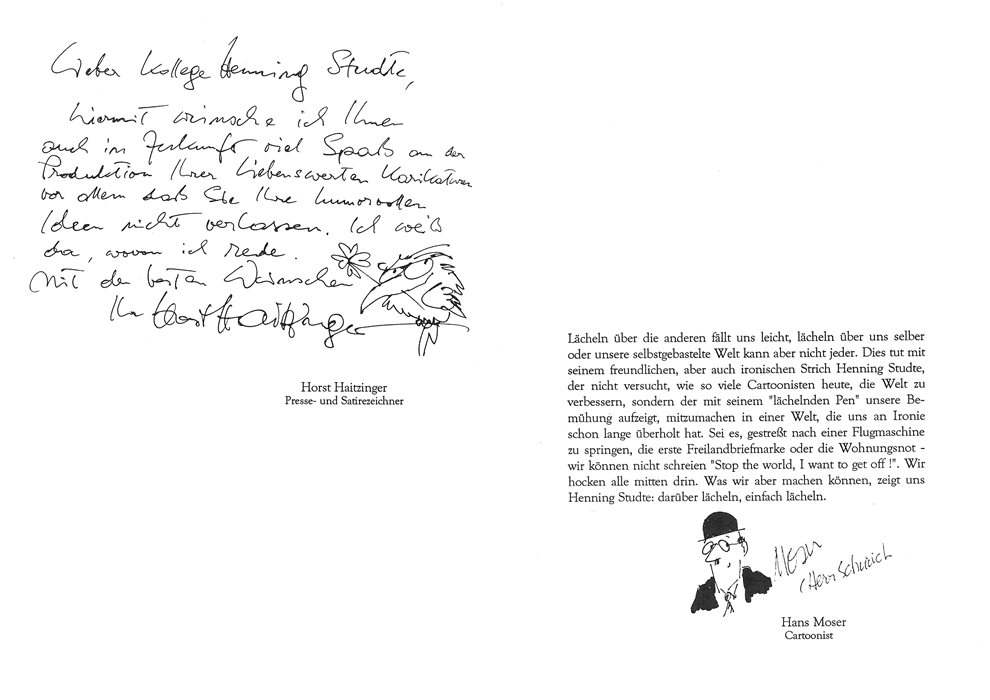 Lieber Kollege Henning Studte,
hiermit wünsche ich Ihnen
auch in Zukunft viel Spaß an der
Produktion Ihrer liebenswerten Karikaturen
vor allem daß Sie Ihre humorvollen
Ideen nicht verlassen. Ich weiß
da, wovon ich rede.
Mit den besten Wünschen
Ihr Horst Haitzinger
Horst Haitzinger
Presse- und Satirezeichner
Lächeln über die anderen fällt uns leicht, lächeln über uns selber
oder unsere selbstgebastelte Welt kann aber nicht jeder. Dies tut mit
seinem freundlichen, aber auch ironischen Strich Henning Studte,
der nicht versucht, wie so viele Cartoonisten heute, die Welt zu
verbessern, sondern der mit seinem "lächelnden Pen" unsere Be-
mühung aufzeigt, mitzumachen in einer Welt, die uns an Ironie
schon lange überholt hat. Sei es, gestreßt nach einer Flugmaschine
zu springen, die erste Freilandbriefmarke oder die Wohnungsnot -
wir können nicht schreien "Stop the world, I want to get off !". Wir
hocken alle mitten drin. Was wir aber machen können, zeigt uns
Henning Studte: darüber lächeln, einfach lächeln.
Moser
(Herr Schüüch
Hans Moser
Cartoonist